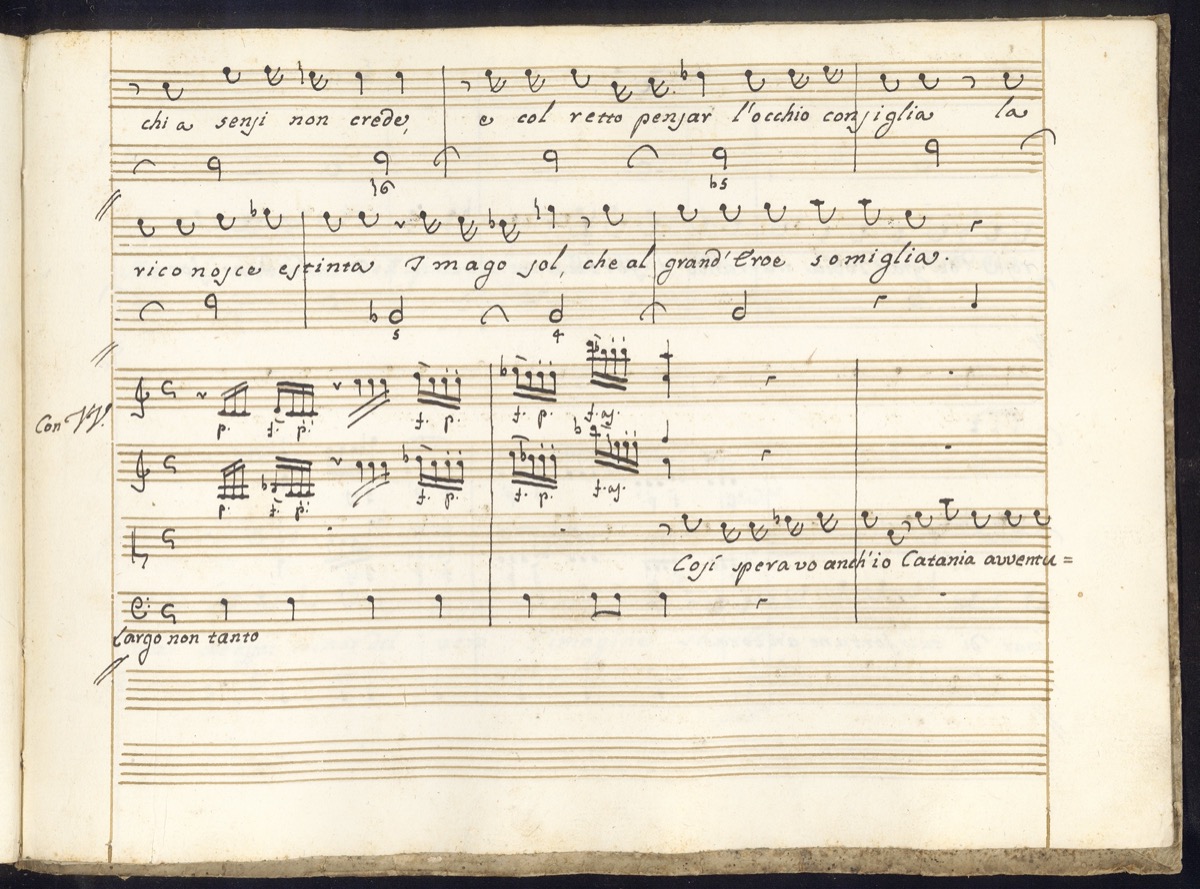 chi a sensi non crede, e col retto pensar l'occhio consiglia la
♮6 b5
rico nosce estinta Imago sol, che al grand' Eroe somiglia.
5 4
Con VV.
p. f. p. f. p. f. p. f. as.
p. f. p. f. p. f. p. f. as.
Così speravo anch'io Catania avventu=
Largo non tanto